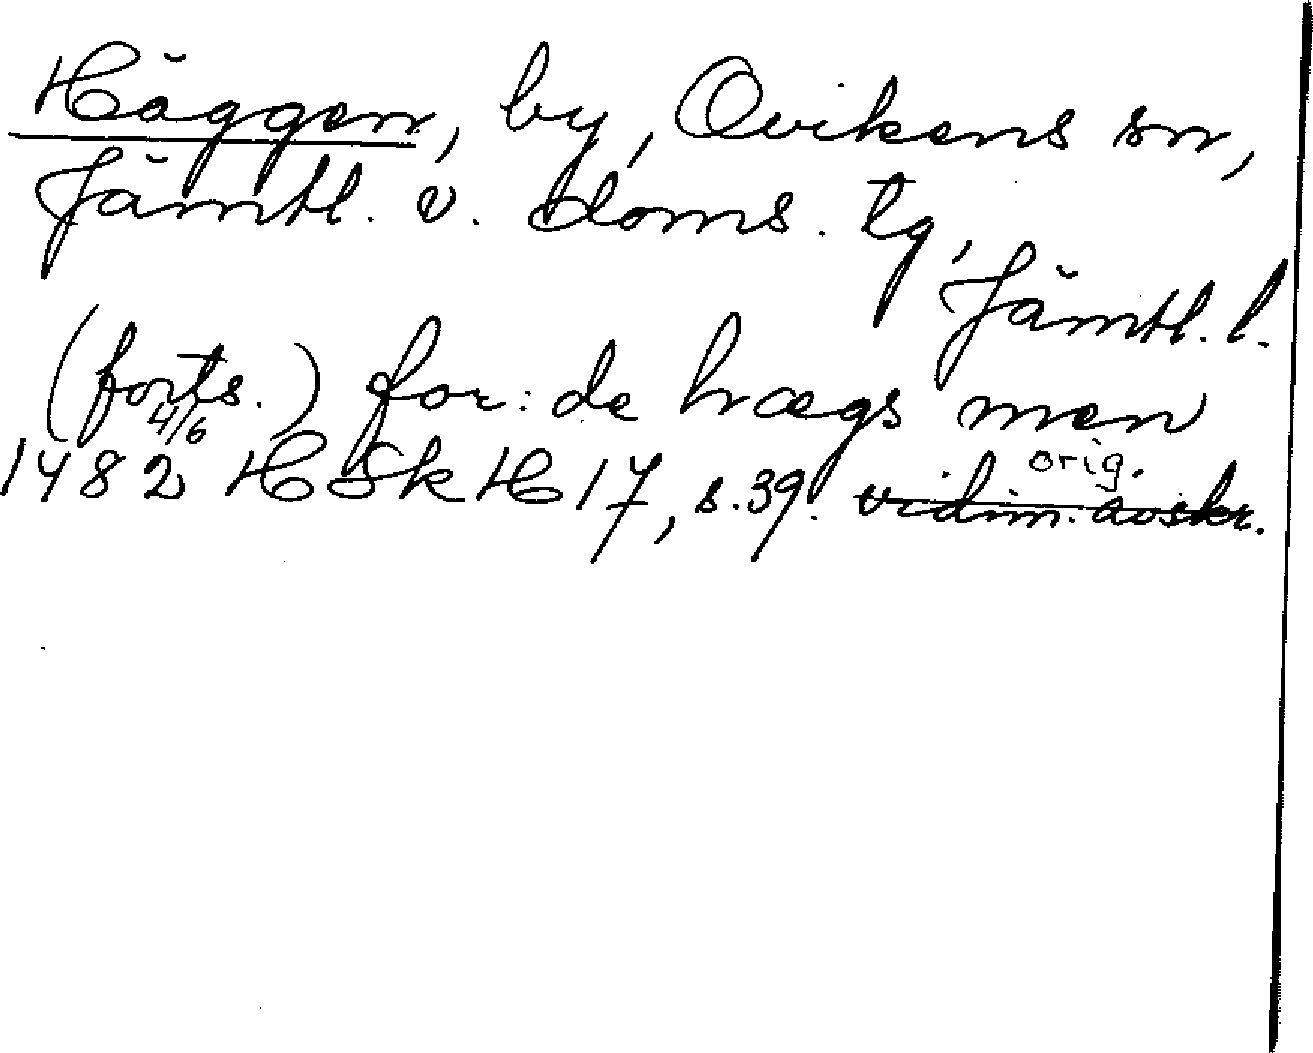 Häggen, by, Ovikens sn,
Jämtl. v. doms. tg,
Jämtl. l.
(forts.) for: de hægs men
4/6
orig.
1482 HSkH 17, s. 39. vidim. avskr.